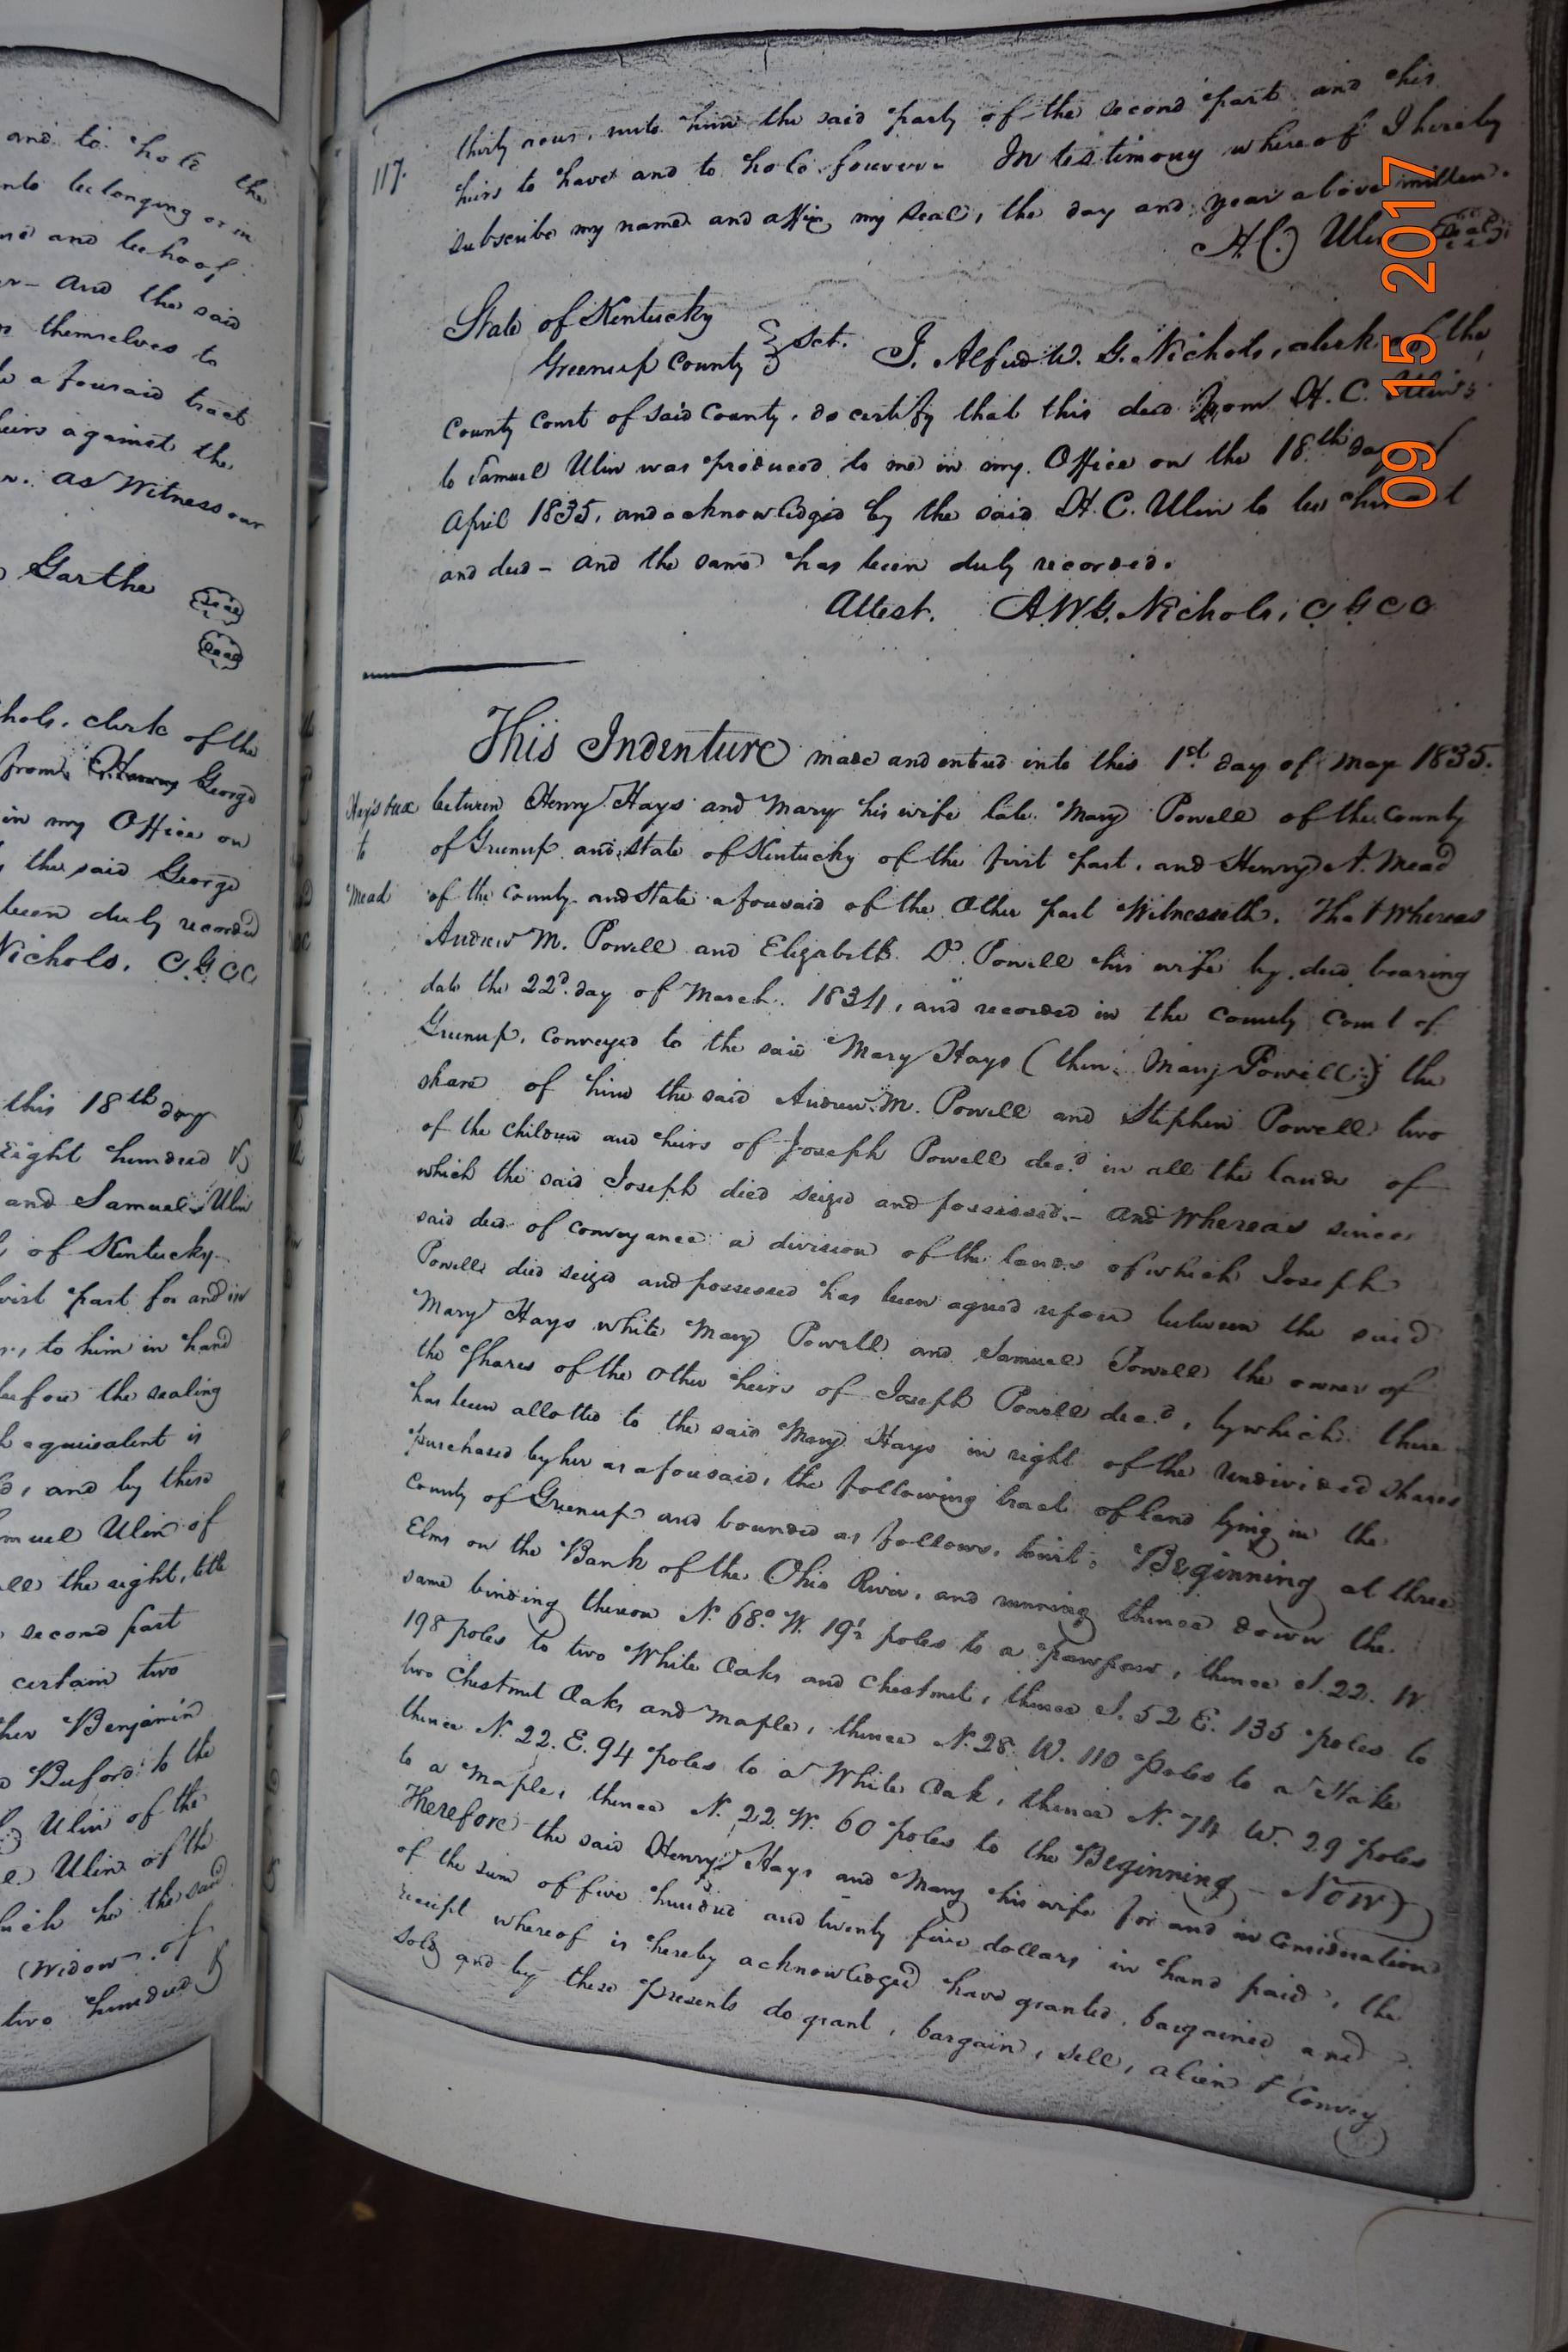 and to hold the
nto belonging or in
and behoof
and the said
themselves to
a forsaid tract
heirs against the
as Witness our
Garthe
Seal
Seal
hols, clerk of the
from George
in my Office on
the said George
been duly recorded
Nichols, C.G.C.C
this 18th day
Eight hundred &
and Samuel Ulin
of Kentucky
first part for and in
to him in hand
before the sealing
equivalent is
and by these
muel Ulin of
all the right, title
second part
certain two
her Benjamin
Buford to the
Ulin of the
Ulin of the
which he the said
(Widow of
two hundred &
117.
thirty acres, unto him the said party of the second part and his
heirs to have and to hold forever. In testimony whereof I hereby
subscribe my name and affix my seal, the day and year above written.
H.C. Ulin Seal
State of Kentucky
Greenup County } Sct. I, Alfred W. G. Nichols, clerk of the
County Court of said County, do certify that this deed from H. C. Ulin
to Samuel Ulin was produced to me in my Office on the 18th day of
April 1835, and acknowledged by the said H. C. Ulin to be his act
and deed - and the same has been duly recorded.
Attest. A.W.G. Nichols, C G C C
This Indenture made and entered into this 1st day of May 1835.
Hays & ux
to
Mead
between Henry Hays and Mary his wife late Mary Powell of the County
of Greenup and State of Kentucky of the first part, and Henry A. Mead
of the County and State aforesaid of the Other part Witnesseth. That Whereas
Andrew M. Powell and Elizabeth D. Powell his wife by deed bearing
date the 22d day of March 1834, and recorded in the County Court of
Greenup, conveyed to the said Mary Hays (then Mary Powell) the
share of him the said Andrew M. Powell and Stephen Powell two
of the children and heirs of Joseph Powell decd in all the lands of
which the said Joseph died seized and possessed - and Whereas since
said deed of conveyance a division of the lands of which Joseph
Powell died seized and possessed has been agreed upon between the said
Mary Hays while Mary Powell and Samuel Powell the owner of
the Shares of the Other heirs of Joseph Powell decd, by which there
has been allotted to the said Mary Hays in right of the undivided shares
purchased by her as aforesaid, the following tract of land lying in the
County of Greenup and bounded as follows, towit: Beginning at three
Elms on the Bank of the Ohio River, and running thence down the
same binding thereon N. 68° W. 19½ poles to a pawpaw, thence S. 22. W.
198 poles to two White Oaks and Chestnut, thence S. 52 E. 135 poles to
two Chestnut Oaks and Maple, thence N. 28. W. 110 Poles to a Stake
thence N. 22. E. 94 poles to a White Oak, thence N. 74 W. 29 poles
to a Maple, thence N. 22 W. 60 poles to the Beginning - Now
Therefore the said Henry Hays and Mary his wife for and in Consideration
of the sum of five hundred and twenty five dollars in hand paid, the
receipt whereof is hereby acknowledged have granted, bargained and
sold and by these presents do grant, bargain, sell, alien & Convey
09 15 2017